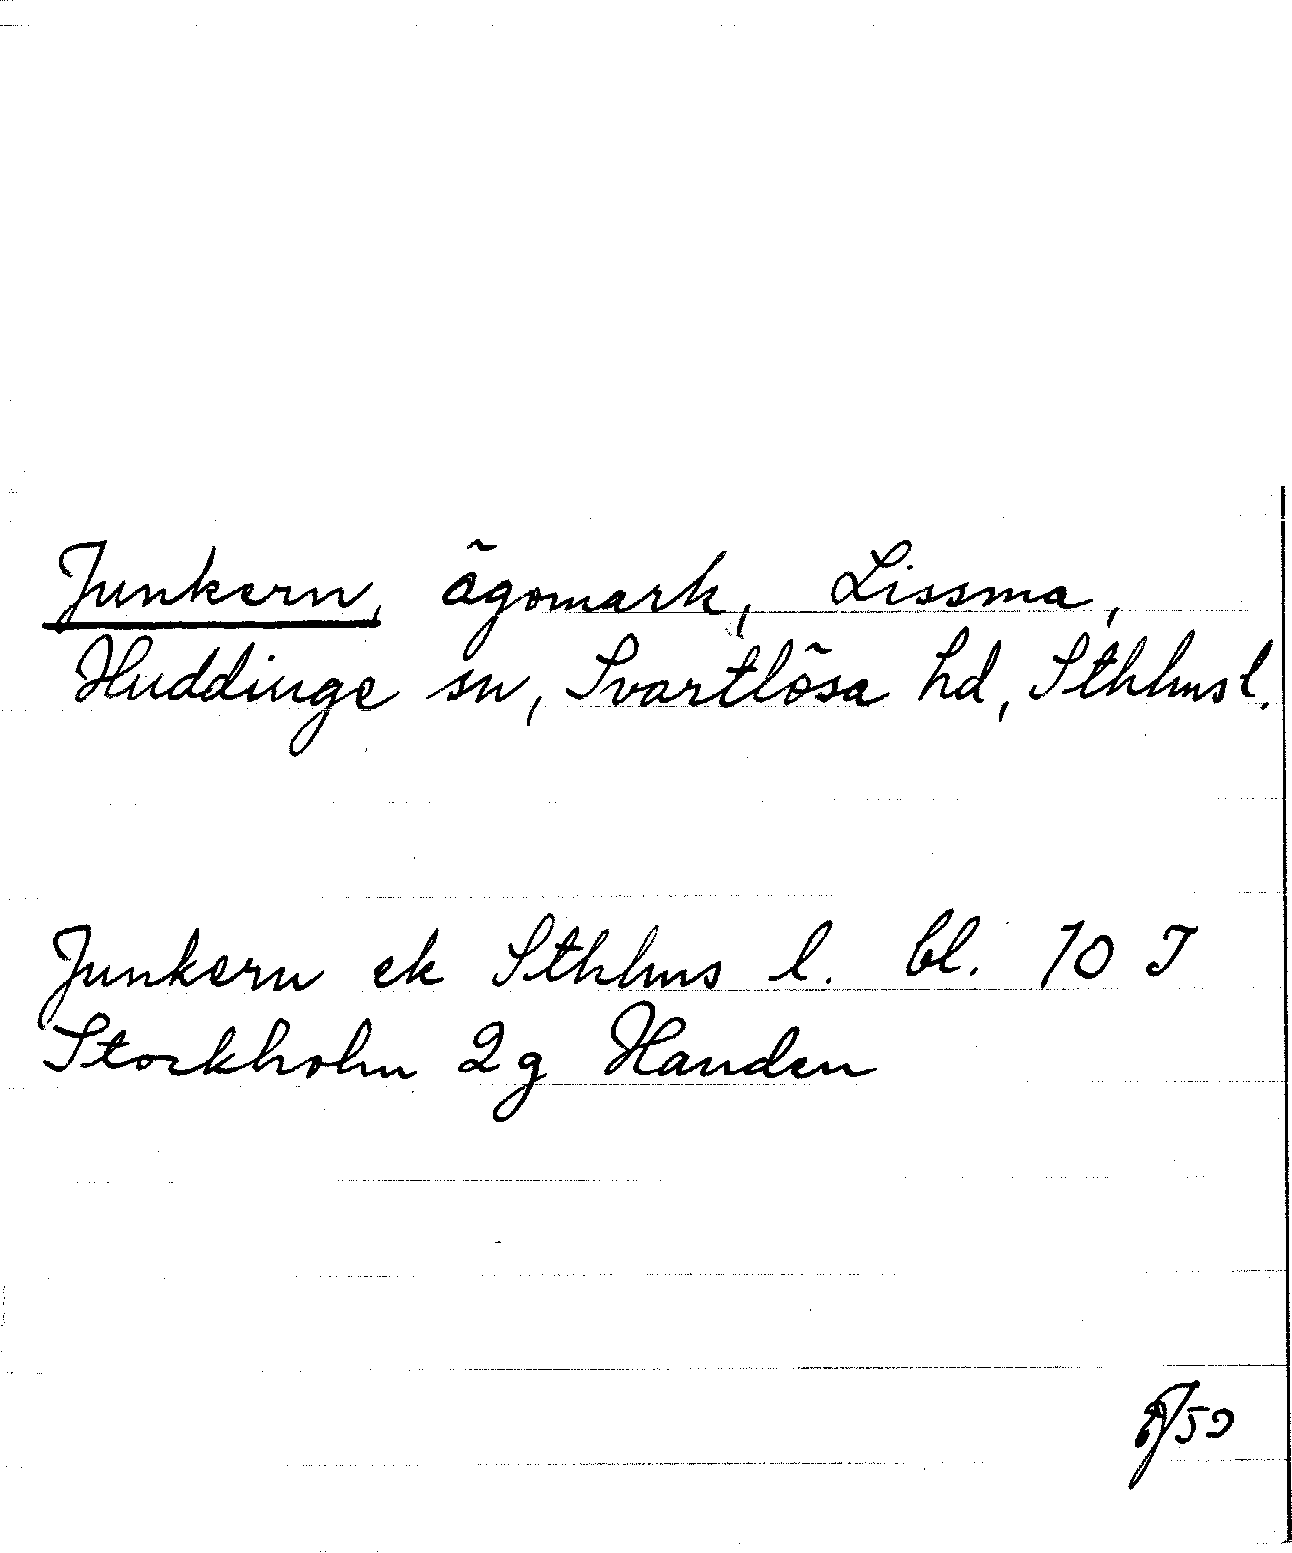 Junkern, ägomark, Lissma,
Huddinge sn, Svartlösa hd, Sthlms l.
Junkern ek Sthlms l. bl. 10 I
Stockholm 2g Handen